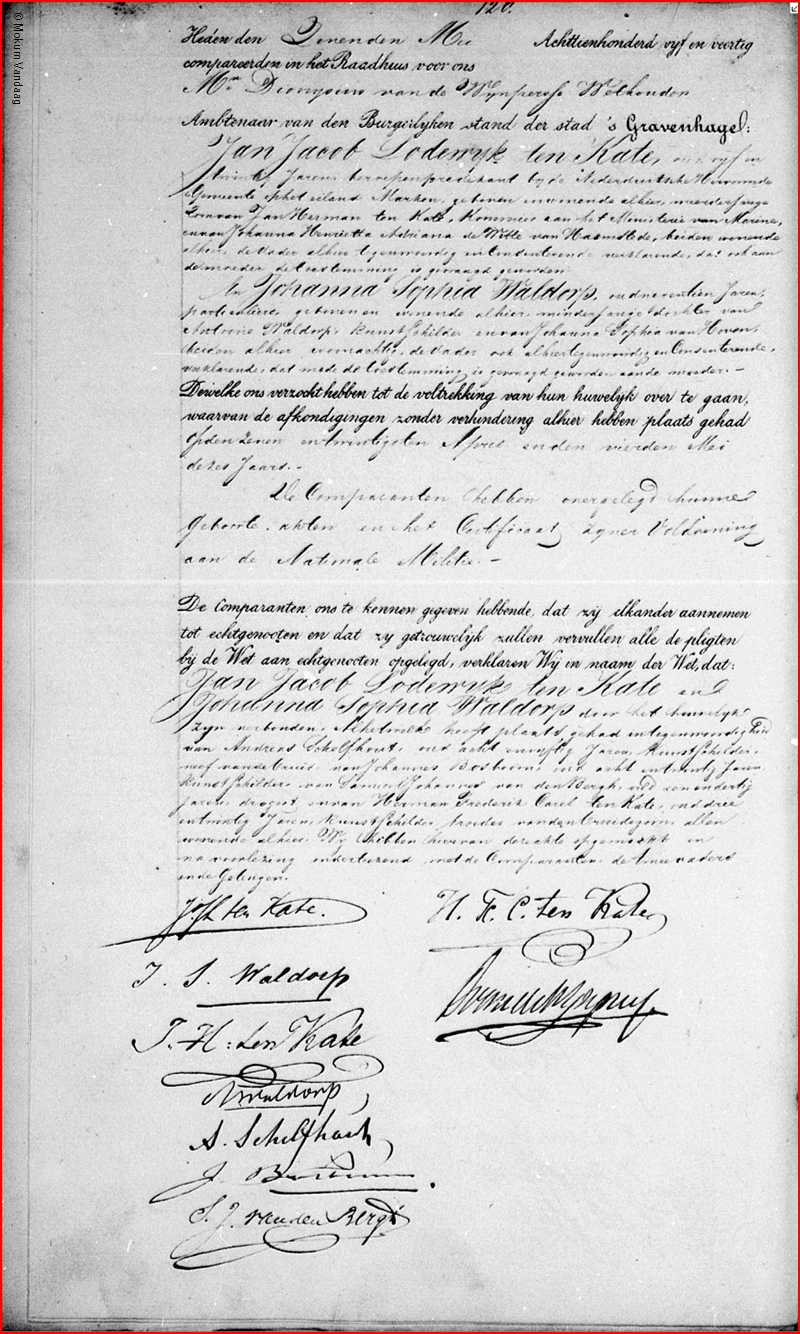 © Mokum Vandaag
120.
Heden den Zevenden Mei Achttienhonderd vyf en veertig
compareerden in het Raadhuis voor ons
Mr. Dionysius van de Wynpersse Wethouder
Ambtenaar van den Burgerlyken stand der stad 's Gravenhage:
Jan Jacob Lodewyk ten Kate, oud vyf en
twintig Jaren, beroepen predikant by de Nederduitsche Hervormde
Gemeente op het eiland Marken, geboren en wonende alhier, meerderjarige
Zoon van Jan Herman ten Kate, Kommies aan het Ministerie van Marine,
en van Johanna Henrietta Adriana de Witte van Haemstede, beiden wonende
alhier, de Vader alhier tegenwoordig en Consenterende verklarende, dat ook aan
de moeder de toestemming is gevraagd geworden
En Johanna Sophia Waldorp, oud negentien Jaren,
particuliere, geboren en wonende alhier, minderjarige dochter van
Antonie Waldorp, Kunstschilder en van Johanna Sophia van Hoven,
beiden alhier woonachtig, de Vader ook alhier tegenwoordig en Consenterende,
verklarende, dat mede de toestemming is gevraagd geworden aan de moeder.
Dewelke ons verzocht hebben tot de voltrekking van hun huwelyk over te gaan,
waarvan de afkondigingen zonder verhindering alhier hebben plaats gehad
op den zeven en twintigsten April en den vierden Mei
dezes Jaars.-
De Comparanten hebben overgelegd hunne
Geboorte-akten en het Certificaat zyner Voldoening
aan de Nationale Militie.-
De Comparanten ons te kennen gegeven hebbende, dat zij elkander aannemen
tot echtgenooten en dat zy getrouwelyk zullen vervullen alle de pligten
bij de Wet aan echtgenooten opgelegd, verklaren Wij in naam der Wet, dat:
Jan Jacob Lodewyk ten Kate en
Johanna Sophia Waldorp door het huwelyk
zyn verbonden. Hetwelk heeft plaats gehad in tegenwoordigheid
van Andreas Schelfhout, oud acht en vyftig Jaren, Kunstschilder,
neef van de bruid, van Johannes Bosboom, oud acht en twintig Jaren,
Kunstschilder, van Samuel Johannes van den Bergh, oud een en dertig
Jaren, drogist, en van Herman Frederik Carel ten Kate, oud drie
en twintig Jaren, Kunstschilder, broeder van den bruidegom, allen
wonende alhier. Wy hebben hiervan deze akte opgemaakt en
na voorlezing onderteekend, met de Comparanten, de twee vaders
en de Getuigen.
J.J.L. ten Kate.
H. F. C. ten Kate
J. S. Waldorp
J. H. ten Kate
A Waldorp
A. Schelfhout
J. Bosboom
S. J. van den Bergh